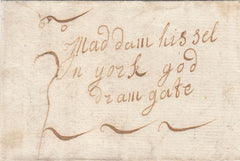 To
Maddam hissel
In york god
dram gate